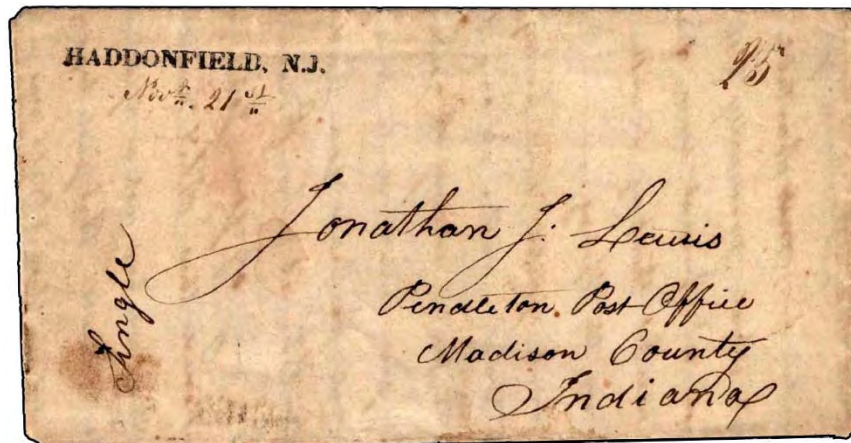 HADDONFIELD, N.J.
Novr. 21st
25
Jonathan J. Lewis
Single
Pendleton Post Office
Madison County
Indiana